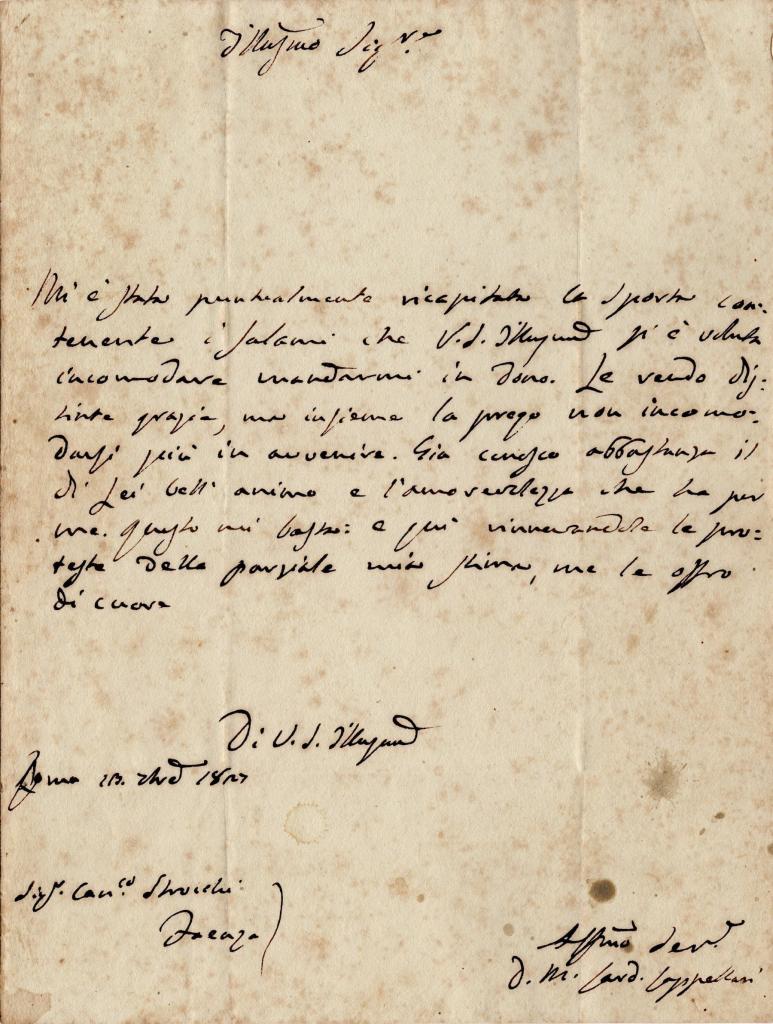 Illusmo Sigre
Mi è stata puntualmente ricapitata la sporta con:
tenente i salami che V. S. Illusma si è voluta
incomodare mandarmi in dono. Le rendo dis:
tinte grazie, ma insieme la prego non incomo:
darsi più in avvenire. Già conosco abbastanza il
di Lei bell' animo e l'amorevolezza che ha per
me. Questo mi basta: e qui rinnovandole le pro:
teste della parziale mia stima, me le offro
di cuore
Di V. S. Illusma
Roma
Sigr. Canco Strocchi
Faenza
Affmo Servr
D. M. Card. Cappellari